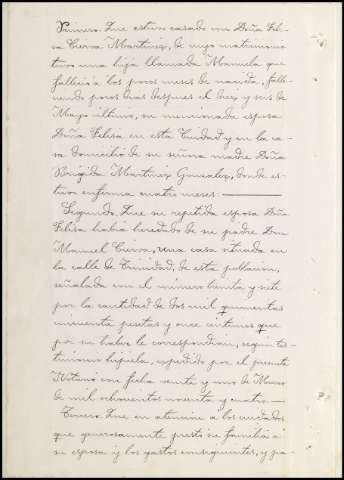 Primero: Que estuvo casado con Doña Feli-
sa Cierva Martinez, de cuyo matrimonio
tuvo una hija llamada Manuela que
falleció a los pocos meses de nacida, falle-
ciendo pocos dias despues el diez y seis de
Mayo último, su mencionada esposa
Doña Felisa en esta Ciudad y en la ca-
sa domicilio de su señora madre Doña
Brigida Martinez Gonzalez, donde es-
tuvo enferma cuatro meses.
Segundo: Que su repetida esposa Dña
Felisa habia heredado de su padre Don
Manuel Cierva, una casa situada en
la calle de Trinidad, de esta poblacion,
señalada con el número treinta y siete
por la cantidad de dos mil quinientas
cincuenta pesetas y once céntimos que
por su haber le correspondian, segun tes-
timonio hijuela, expedido por el presente
Notario con fecha veinte y uno de Marzo
de mil ochocientos noventa y cuatro.
Tercero: Que en atencion a los cuidados
que generosamente prestó su familia á
su esposa y los gastos consiguientes, y pa-